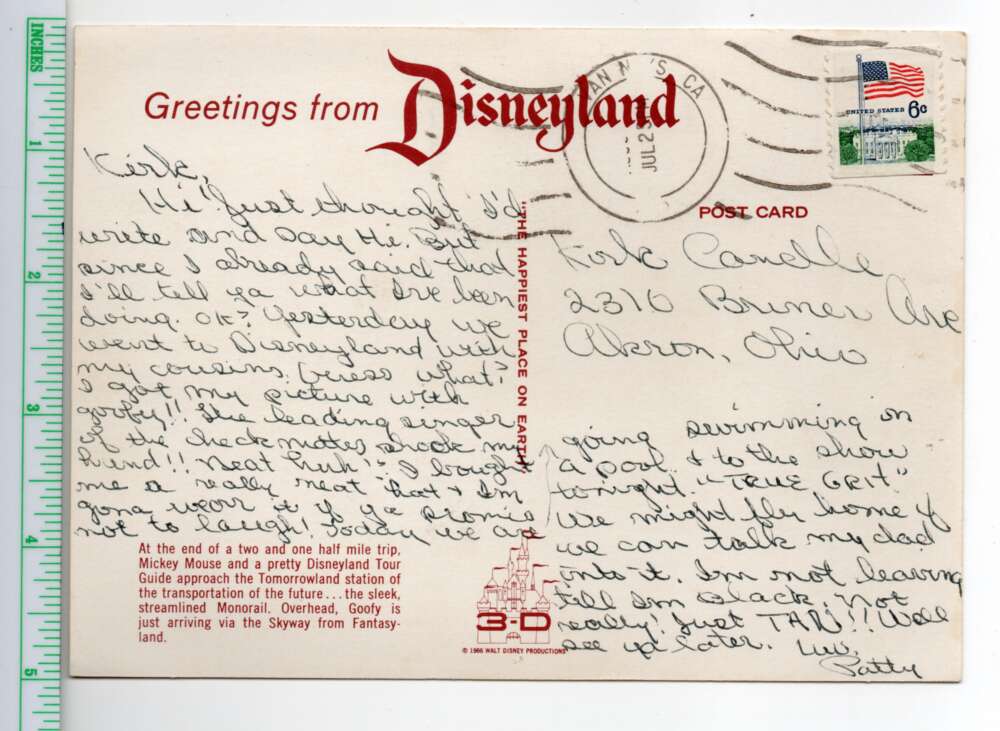 INCHES
1
2
3
4
5
Greetings from Disneyland
JUL 2
CA
UNITED STATES 6c
POST CARD
"THE HAPPIEST PLACE ON EARTH"
Kirk,
Hi! Just thought I'd
write and say Hi. But
since I already said that
I'll tell ya what I've been
doing. OK? Yesterday we
went to Disneyland with
my cousins. Guess what?
I got my picture with
goofy!! The leading singer
of the checkmates shook my
hand!! Neat huh? I bought
me a really neat hat & I'm
gona wear it if ya promis
not to laugh! Today we are
Kirk
2316 Bruner Ave
Akron, Ohio
going swimming in
a pool & to the show
tonight. "TRUE GRIT"
We might fly home if
we can talk my dad
into it. I'm not leaving
till I'm black. Not
really! Just TAN!! Well
see ya later. Luv,
Patty
At the end of a two and one half mile trip,
Mickey Mouse and a pretty Disneyland Tour
Guide approach the Tomorrowland station of
the transportation of the future...the sleek,
streamlined Monorail. Overhead, Goofy is
just arriving via the Skyway from Fantasy-
land.
3-D
© 1966 WALT DISNEY PRODUCTIONS